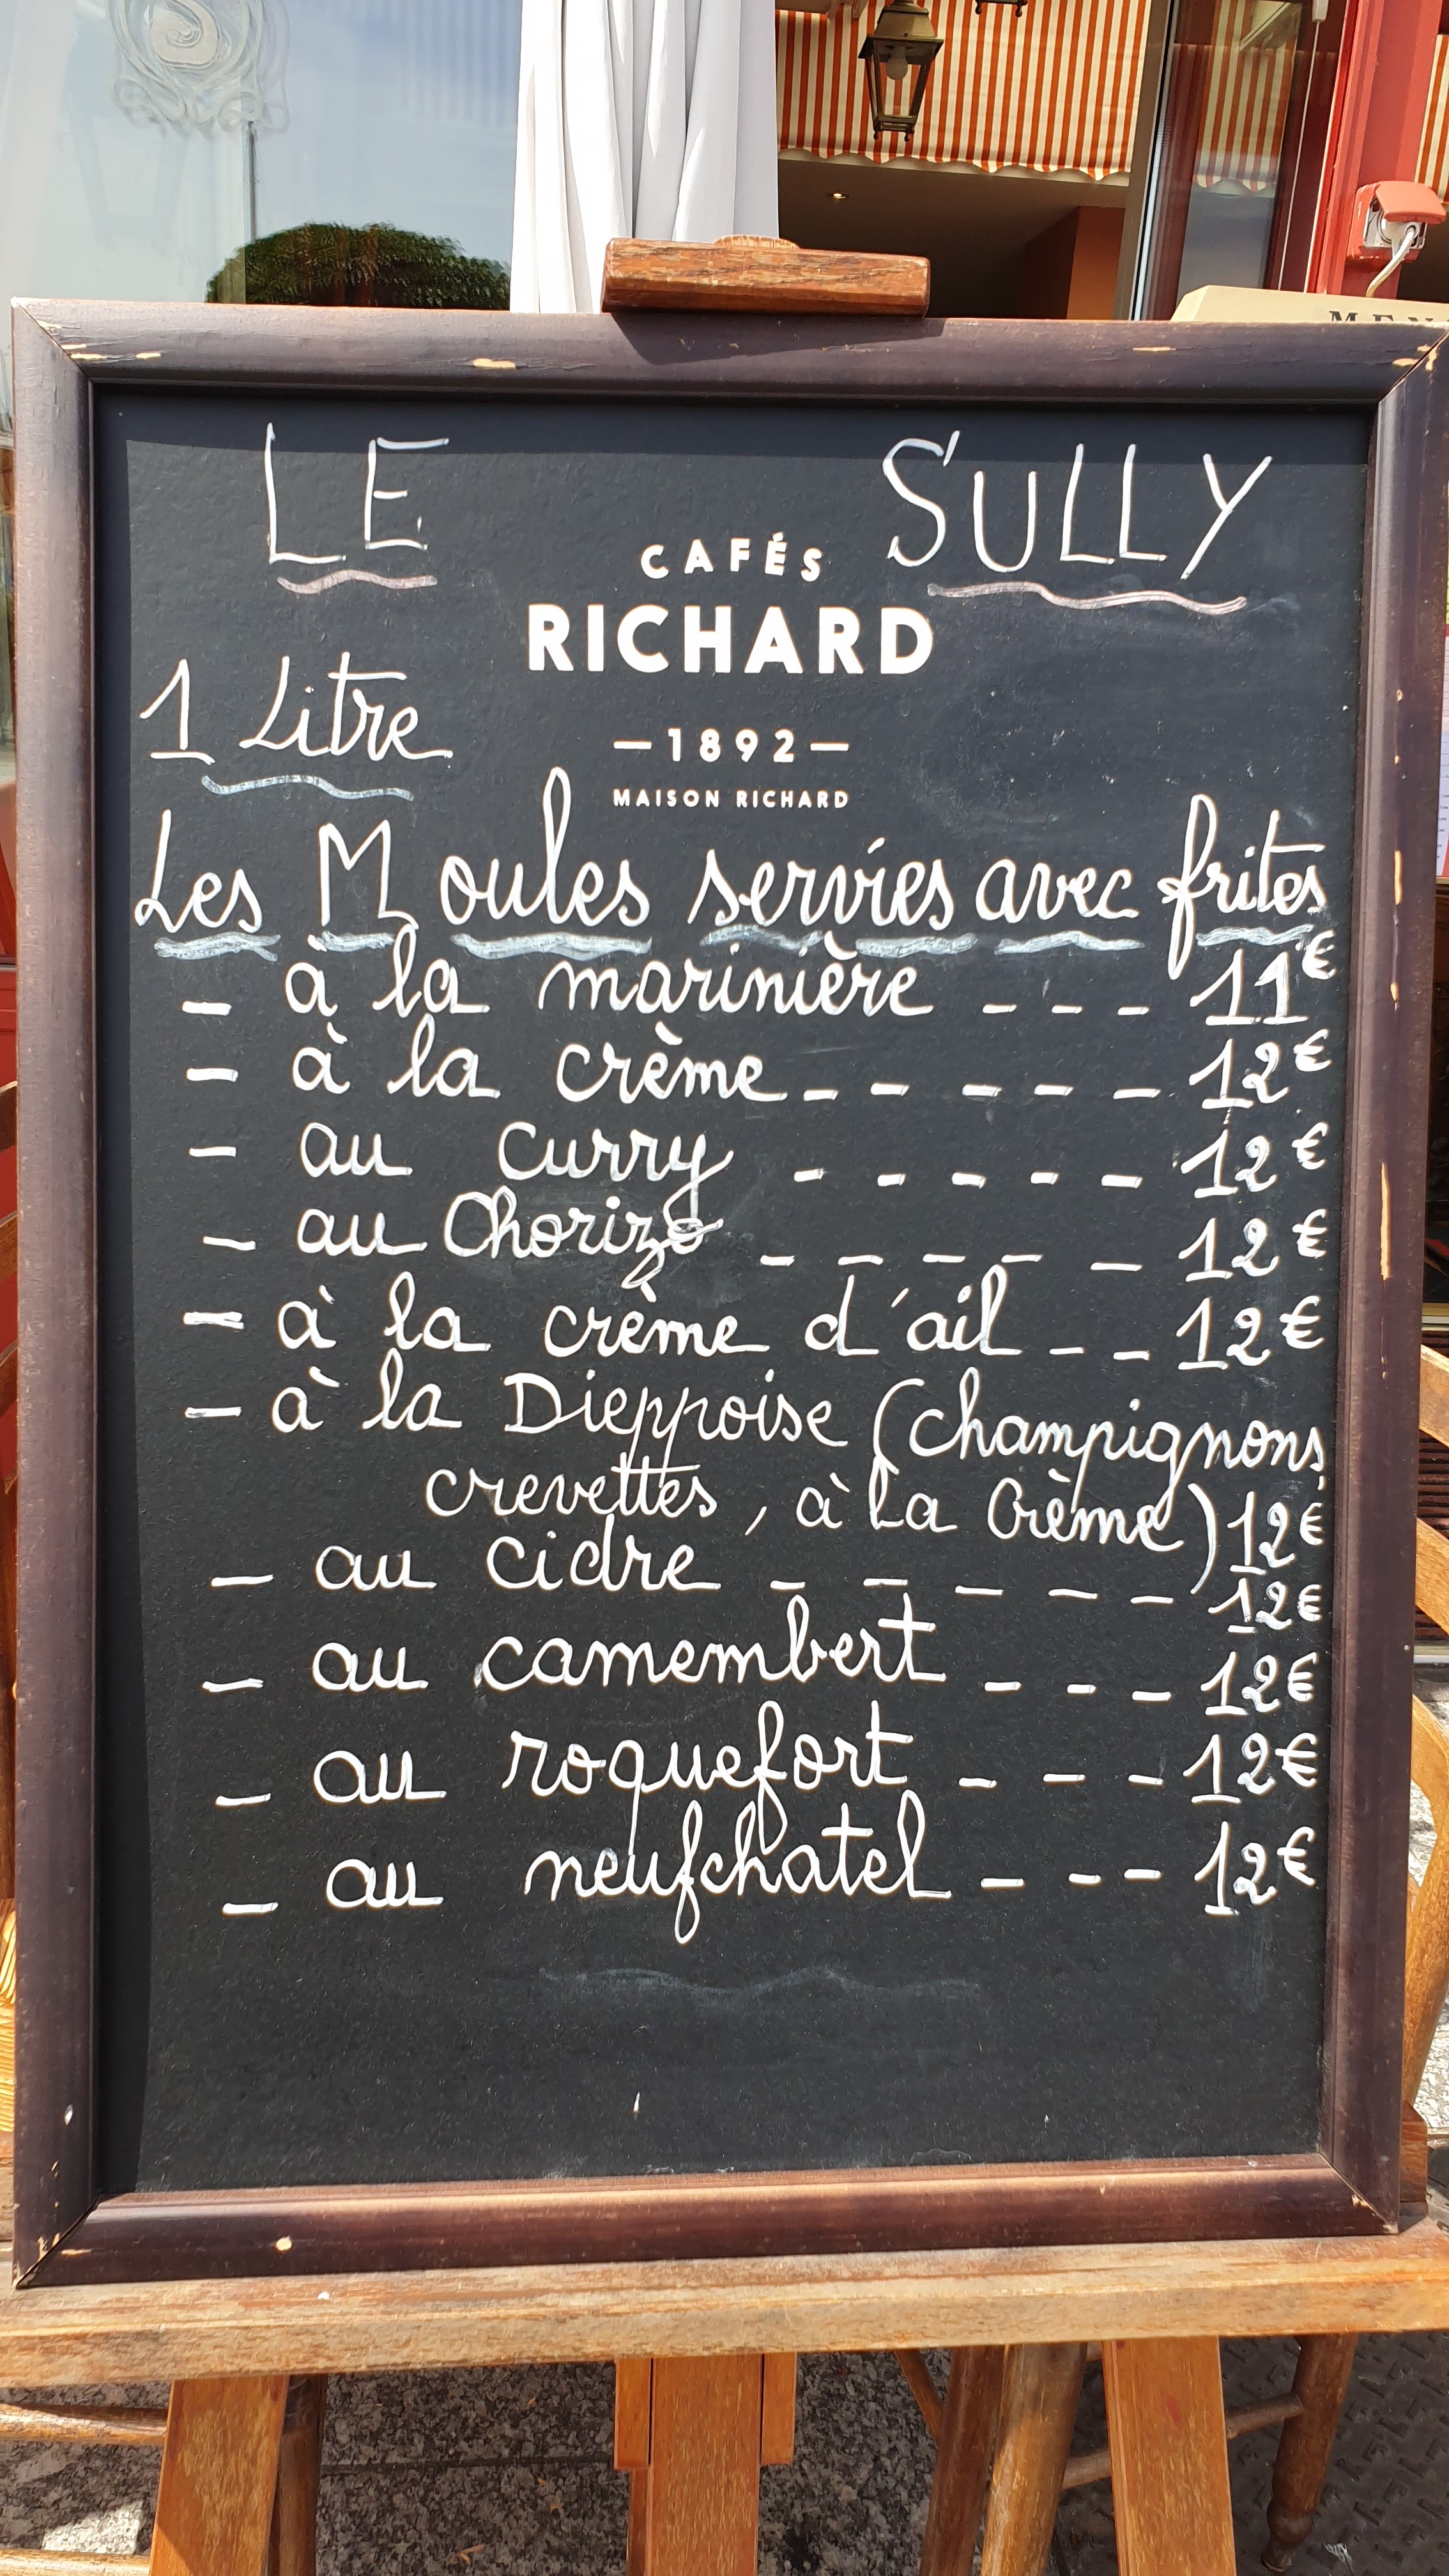 MEN
LE SULLY
CAFÉS
RICHARD
1 Litre
—1892—
MAISON RICHARD
Les Moules servies avec frites
_ à la marinière _ _ _ 11€
_ à la crème _ _ _ _ _ 12€
_ au curry _ _ _ _ _ 12€
_ au Chorizo _ _ _ _ _ 12€
_ à la crème d'ail _ _ 12€
_ à la Dieppoise (champignons,
crevettes, à la Crème) 12€
_ au cidre _ _ _ _ _ 12€
_ au camembert _ _ _ 12€
_ au roquefort _ _ _ 12€
_ au neufchatel _ _ _ 12€